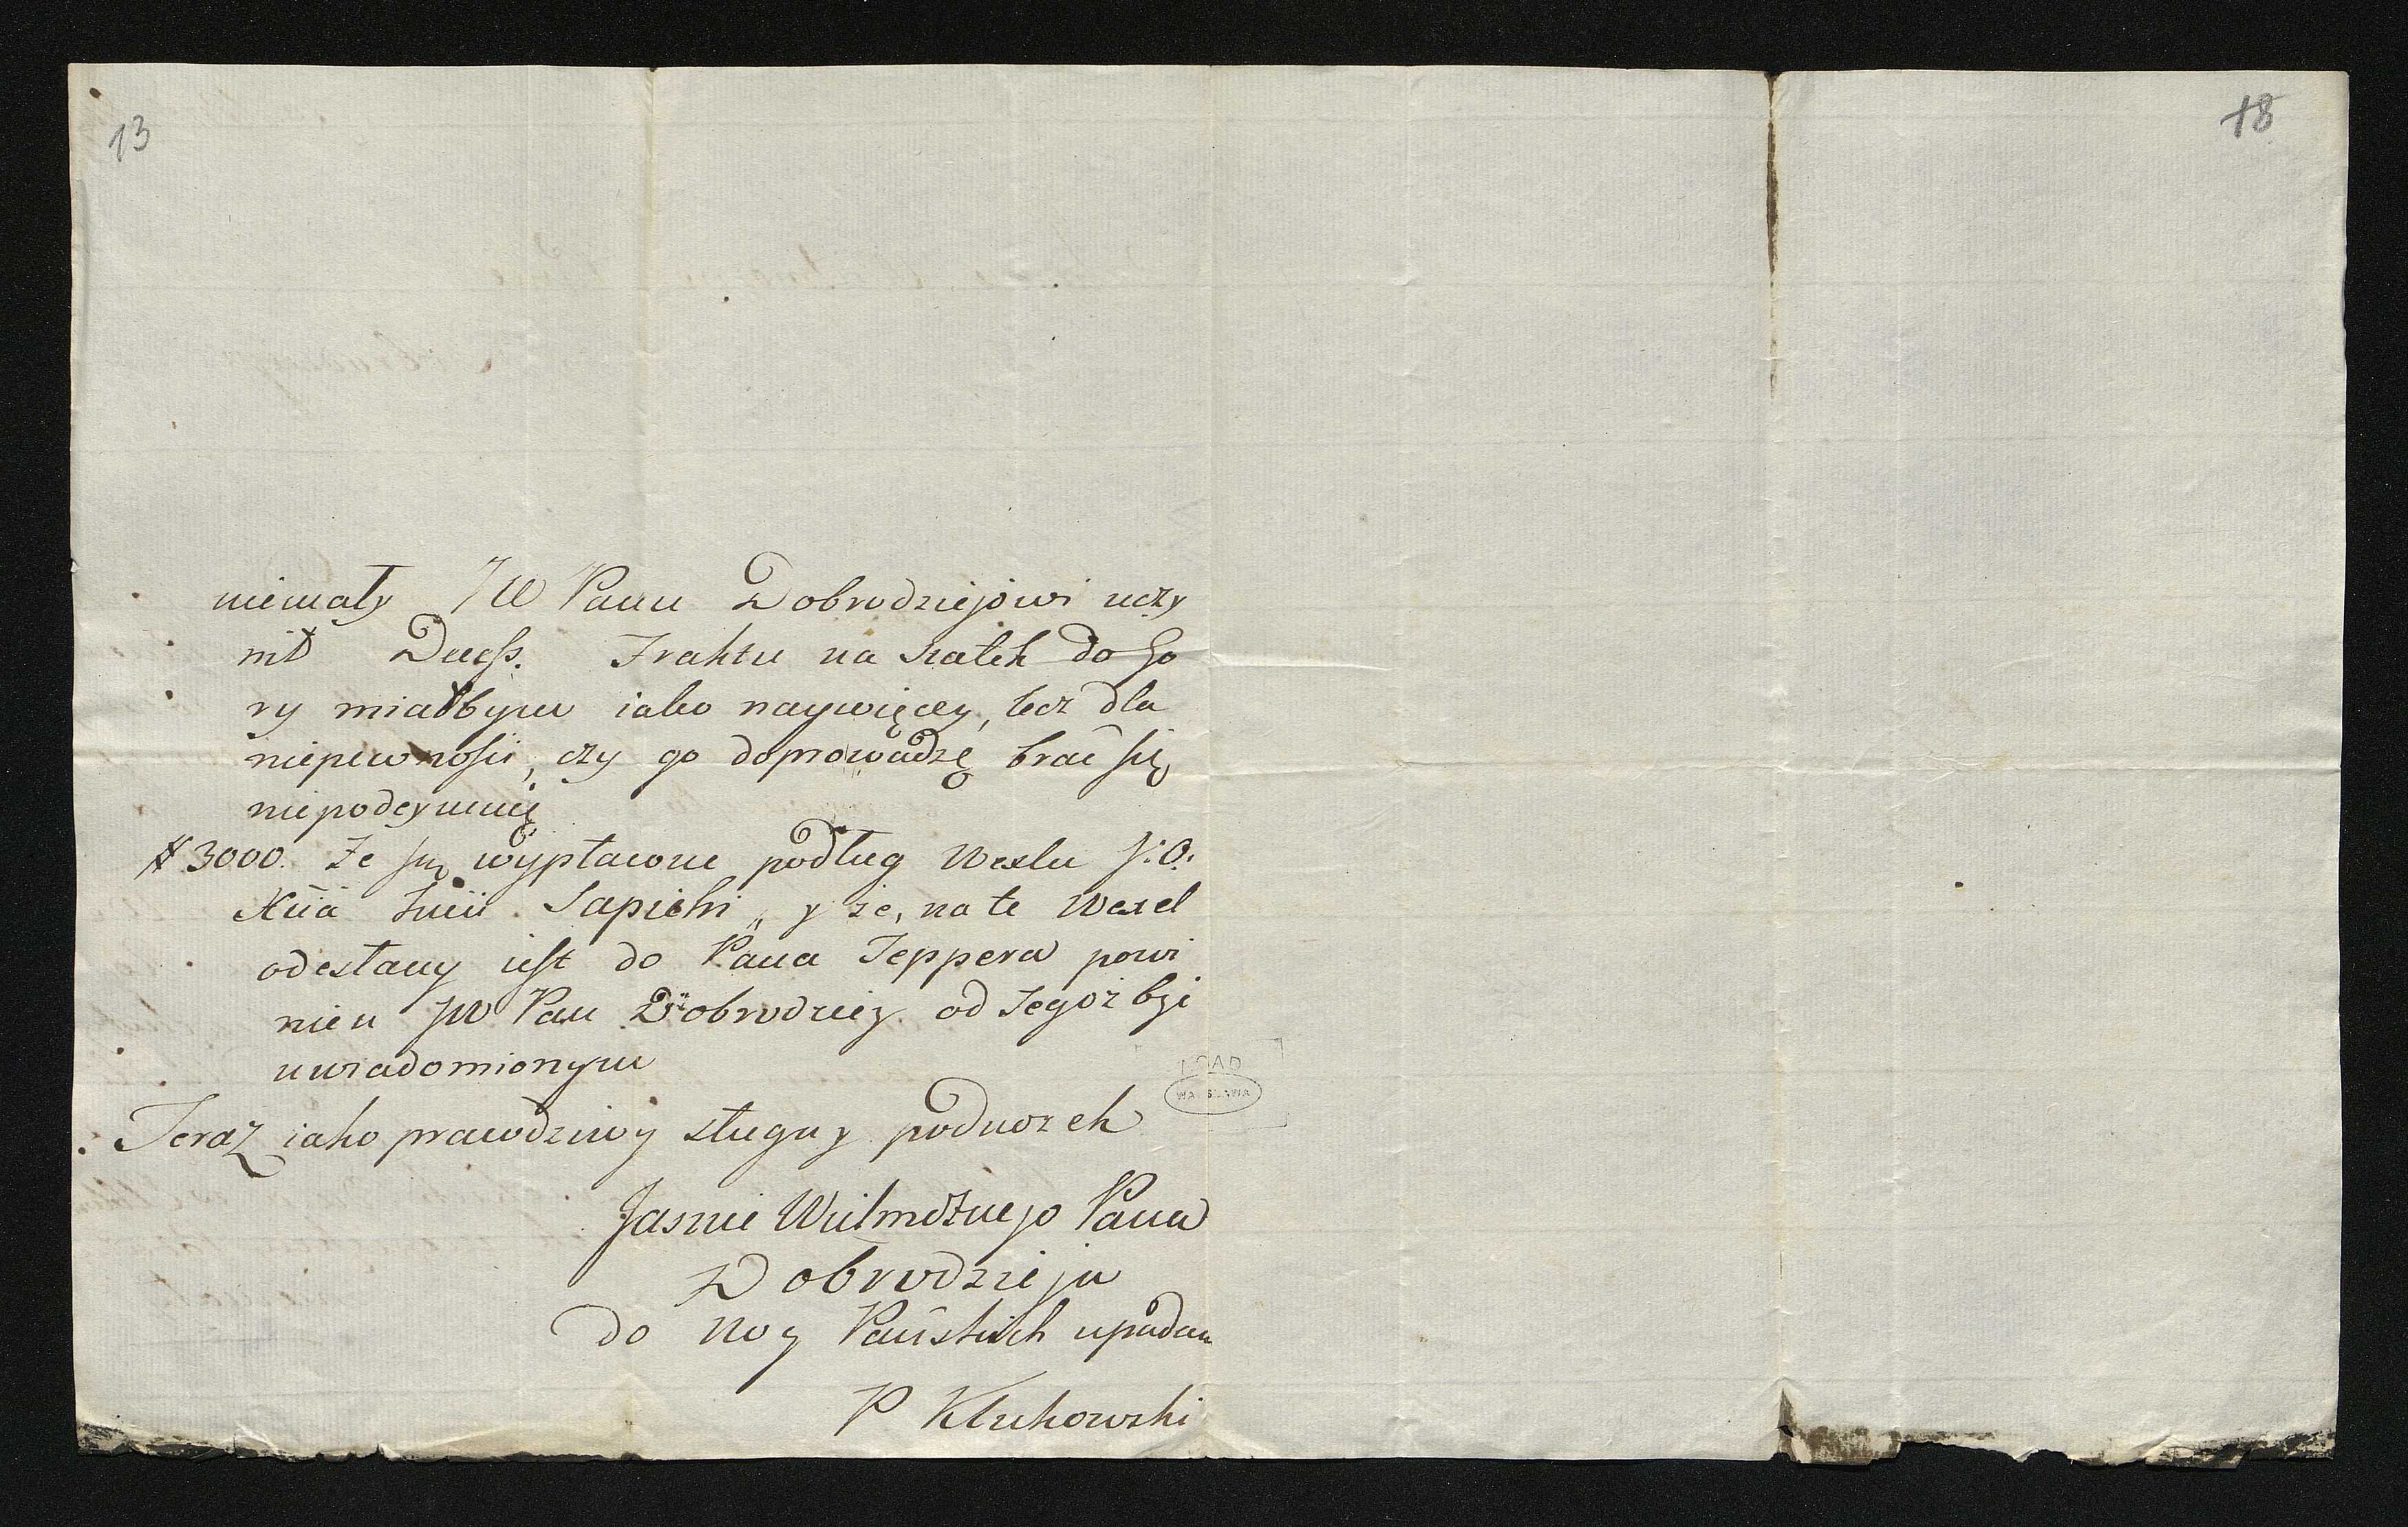 13
18
niemały JW Panu Dobrodziejowi uczy
nił Dusz. Frahtu na statek do Go
ry miałbym iako naywięcey, lecz dla
niepewności, czy go doprowadzę brać się
niepodeymuię
# 3000. że są wypłacone podług Wexlu J: O:
Xcia Jmci Sapiehi, y że, na te Wexel
odesłany iest do Pana Teppera powi
nien JW Pan Dobrodziey od Tegoż być
uwiadomionym
Teraz iako prawdziwy sługa y podnozek
Jasnie Wielmożnego Pana
Dobrodzieja
do nog Pańskich upadam
P Kłukowski
AGAD
WARSZAWA